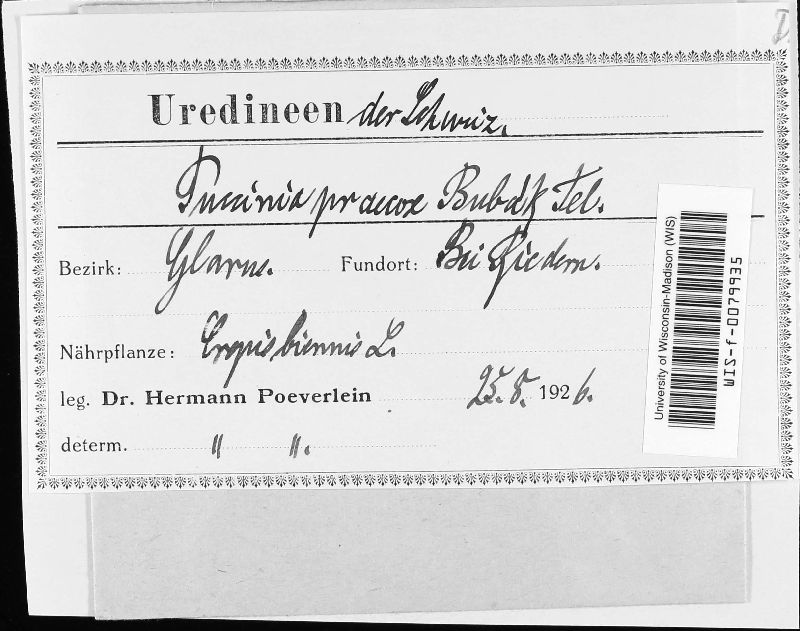 Uredineen der Schweiz.
Puccinia praecox Bubák Tel.
Bezirk: Glarus. Fundort: Bei Riedern.
Nährpflanze: Crepis biennis L.
leg. Dr. Hermann Poeverlein 25. 8. 1926.
determ. " ".
University of Wisconsin-Madison (WIS)
WIS-f-0079935